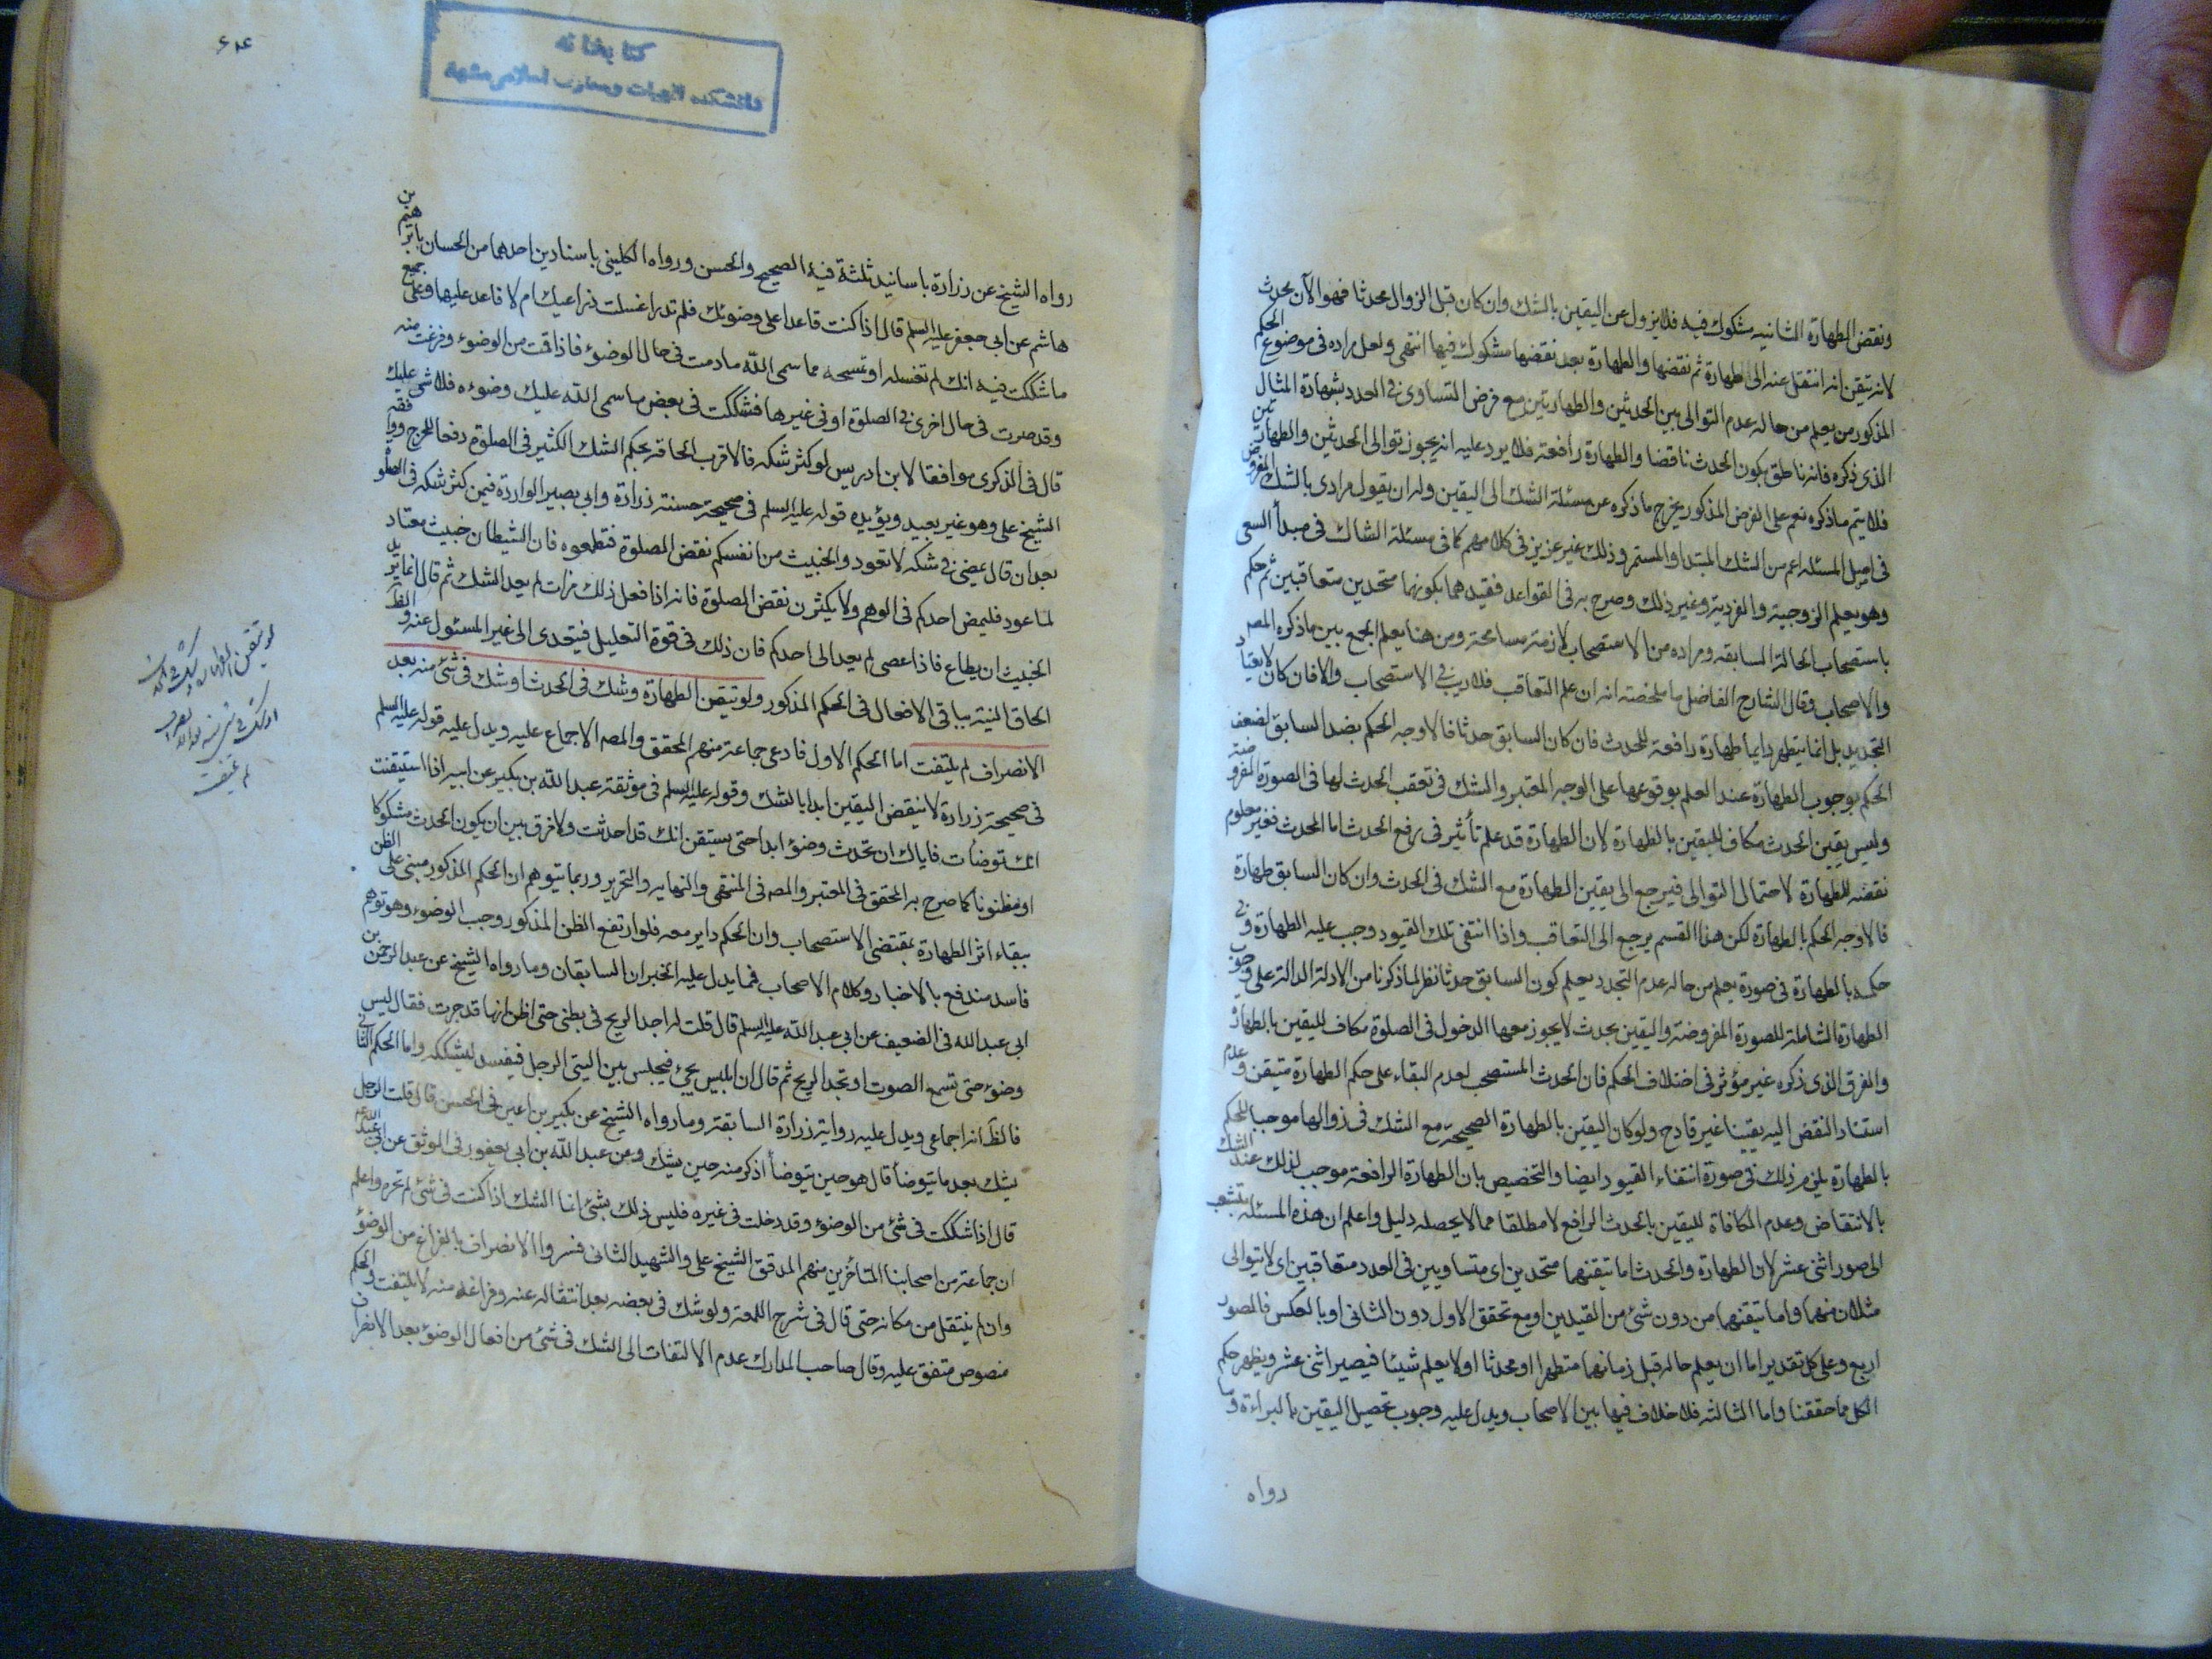 ونقض الطهارة الثانيه مشكوك فيه فلا يزول عن اليقين بالشك وان كان قبل الزوال محدثا فهو الآن محدث
لانه تيقن انه انتقل عنه الى طهارة ثم نقضها والطهارة بعد نقضها مشكوك فيها انتهى ولعل مراده فى موضوع الحكم
المذكور من يعلم من حاله عدم التوالى بين الحدثين والطهارتين مع فرض التساوى فى العدد بشهادة المثال
الذى ذكره فانه ناطق بكون الحدث ناقضا والطهارة رافعة فلا يرد عليه انه يجوز توالى الحدثين والطهارتين
فلا يتم ما ذكره نعم على الفرض المذكور يخرج ما ذكره عن مسئلة الشك الى اليقين وله ان يقول مرادى بالشك المفروض
فى اصل المسئله اعم من الشك المبتدا والمستمر وذلك غير عزيز فى كلامهم كما فى مسئلة الشاك فى مبدأ السعى
وهو يعلم الزوجية والفردية وغير ذلك وصرح به فى القواعد فقيدهما بكونهما متحدين متعاقبين ثم حكم
باستصحاب الحالة السابقه ومراده من الاستصحاب لازمه مسامحة ومن هنا يعلم الجمع بين ما ذكره المصه
والاصحاب وقال الشارح الفاضل ما ملخصته انه ان علم التعاقب فلا ريب فى الاستصحاب والا فان كان لا يعتاد
التجديد بل انما يتطهر دايما طهارة رافعة للحدث فان كان السابق حدثا فالاوجه الحكم بضد السابق لضعف
الحكم بوجوب الطهارة عند العلم بوقوعها على الوجه المعتبر والشك فى تعقب الحدث لها فى الصورة المفروضة
وليس يقين الحدث مكاف لليقين بالطهارة لان الطهارة قد علم تأثير فى رفع الحدث اما الحدث فغير معلوم
نقضه للطهارة لاحتمال التوالى فيرجع الى يقين الطهارة مع الشك فى الحدث وان كان السابق طهارة
فالاوجه الحكم بالطهارة لكن هذا القسم يرجع الى التعاقب واذا انتفى تلك القيود وجب عليه الطهارة وفى
حكمه بالطهارة فى صورة يعلم من حاله عدم التجدد يعلم كون السابق حدثا نظر لما ذكرنا من الادلة الدالة على وجوب
الطهارة الشاملة للصورة المفروضة واليقين بحدث لا يجوز معها الدخول فى الصلوة مكاف لليقين بالطهارة
والفرق الذى ذكره غير مؤثر فى اختلاف الحكم فان الحدث المستصحب لعدم البقاء على حكم الطهارة متيقن وعدم
استناد النقض اليه يقينا غير قادح ولو كان اليقين بالطهارة الصحيحة مع الشك فى زوالها موجبا للحكم
بالطهارة يلزم ذلك فى صورة انتفاء القيود ايضا والتخصيص بان الطهارة الرافعة موجب لذلك عند الشك
بالانتقاض وعدم المكافاة لليقين بالحدث الرافع لا مطلقا مما لا يحصله دليل واعلم ان هذه المسئله تتشعب
الى صور اثنى عشر لان الطهارة والحدث اما تيقنهما متحدين اى متساويين فى العدد متعاقبين اى لا يتوالى
مثلان منهما واما تيقنهما من دون شئ من القيدين او مع تحقق الاول دون الثانى او بالعكس فالصور
اربع وعلى كل تقدير اما ان يعلم حاله قبل زمانهما متطهرا او محدثا او لا يعلم شيئا فيصير اثنى عشر ويظهر حكم
الكل مما حققنا واما الثالثه فلا خلاف فيها بين الاصحاب ويدل عليه وجوب تحصيل اليقين بالبراءة وما
رواه
كتابخانه
دانشكده الهيات ومعارف اسلامى مشهد
رواه الشيخ عن زرارة باسانيد ثلثة فيه الصحيح والحسن ورواه الكلينى باسنادين احدهما من الحسان بابرهيم بن
هاشم عن ابى جعفر عليه السلم قال اذا كنت قاعدا على وضوئك فلم تدر اغسلت ذراعيك ام لا فاعد عليها وعلى جميع
ما شككت فيه انك لم تغسله او تمسحه مما سمى الله ما دمت فى حال الوضوء فاذا قمت من الوضوء وفرغت منه
وقد صرت فى حال اخرى فى الصلوة او فى غيرها فشككت فى بعض ما سمى الله عليك وضوءه فلا شئ عليك
قال فى الذكرى موافقا لابن ادريس لو كثر شكه فالاقرب الحاقه بحكم الشك الكثير فى الصلوة دفعا للحرج ووافقه
الشيخ على وهو غير بعيد ويؤيده قوله عليه السلم فى صحيحة حسنة زرارة وابى بصير الواردة فيمن كثر شكه فى الصلوة
بعد ان قال يمضى فى شكه لا تعود والخبيث من انفسكم نقض الصلوة فتطمعوه فان الشيطان خبيث معتاد
لما عود فليمض احدكم فى الوهم ولا يكثرن نقض الصلوة فانه اذا فعل ذلك مرات لم يعد الشك ثم قال انما يريد
الخبيث ان يطاع فاذا عصى لم يعد الى احدكم فان ذلك فى قوة التعليل فيتعدى الى غير المسئول عنه والظ
الحاق النية بباقى الافعال فى الحكم المذكور ولو تيقن الطهارة وشك فى الحدث او شك فى شئ منه بعد
الانصراف لم يلتفت اما الحكم الاول فادعى جماعة منهم المحقق والمصه الاجماع عليه ويدل عليه قوله عليه السلم
فى صحيحة زرارة لا ينقض اليقين ابدا بالشك وقوله عليه السلم فى موثقة عبد الله بن بكير عن ابيه اذا استيقنت
انك توضأت فاياك ان تحدث وضوء ابدا حتى يستيقن انك قد احدثت ولا فرق بين ان يكون الحدث مشكوكا
او مظنونا كما صرح به المحقق فى المعتبر والمصه فى المنتهى والنهايه والتحرير وربما يتوهم ان الحكم المذكور مبنى على الظن
ببقاء اثر الطهارة بمقتضى الاستصحاب وان الحكم داير معه فلو ارتفع الظن المذكور وجب الوضوء وهو توهم
فاسد مندفع بالاخبار وكلام الاصحاب فمما يدل عليه الخبران السابقان وما رواه الشيخ عن عبد الرحمن بن
ابى عبد الله فى الضعيف عن ابى عبد الله عليه السلم قال قلت له اجد الريح فى بطنى حتى اظن انها قد خرجت فقال ليس
وضوء حتى تسمع الصوت او تجد الريح ثم قال ان ابليس يجئ فيجلس بين اليتى الرجل فيفسد ليشككه واما الحكم الثانى
فالظ انه اجماعى ويدل عليه رواية زرارة السابقة وما رواه الشيخ عن بكير بن اعين فى الحسن قال قلت الرجل
يشك بعد ما يتوضأ قال هو حين يتوضأ اذكر منه حين يشك وعن عبد الله بن ابى يعفور فى الموثق عن ابى عبد الله
قال اذا شككت فى شئ من الوضوء وقد دخلت فى غيره فليس ذلك بشئ انما الشك اذا كنت فى شئ لم تحزه واعلم
ان جماعة من اصحابنا المتأخرين منهم المدقق الشيخ على والشهيد الثانى فسروا الانصراف بالفراغ من الوضوء
وان لم ينتقل من مكانه حتى قال فى شرح اللمعة ولو شك فى بعضه بعد انتقاله عنه وفراغه منه لا يلتفت والحكم
منصوص متفق عليه وقال صاحب المدارك عدم الالتفات الى الشك فى شئ من افعال الوضوء بعد الانصراف